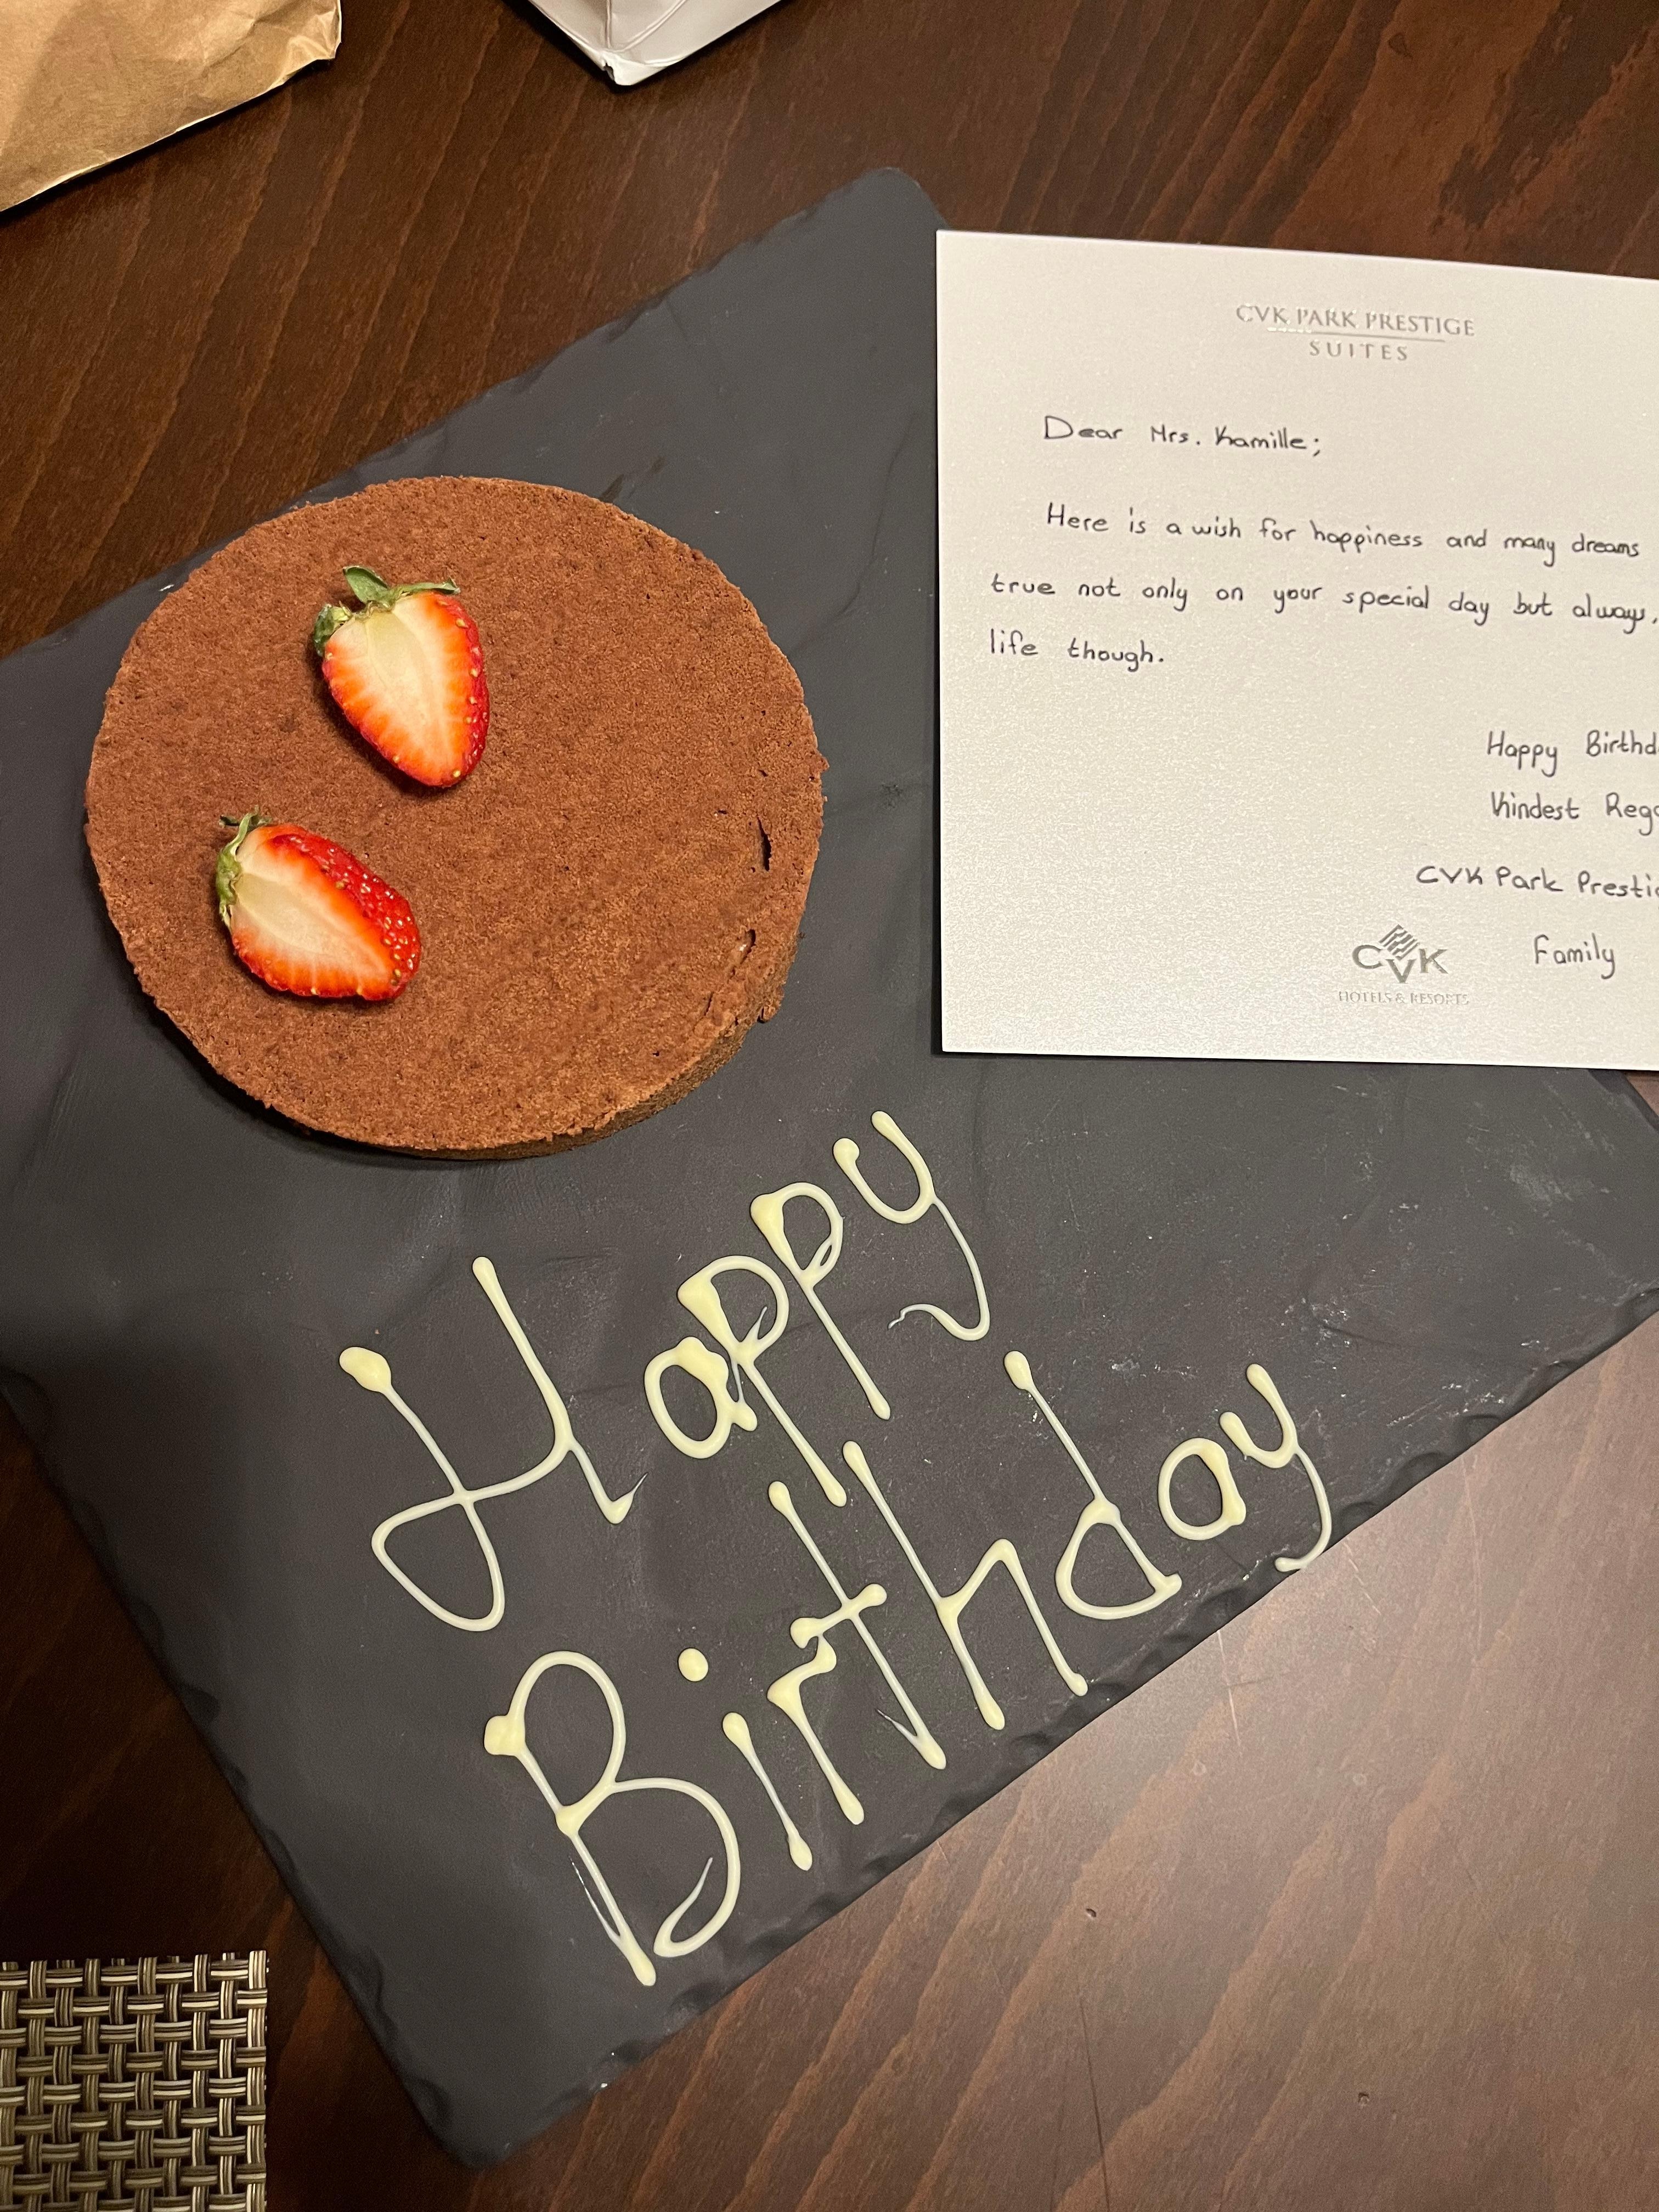 CVK PARK PRESTIGE
SUITES
Dear Mrs. Kamille;
Here is a wish for happiness and many dreams
true not only on your special day but always,
life though.
Happy
Kindest
CVK Park
Family
CVK
HOTELS & RESORTS
Happy
Birthday